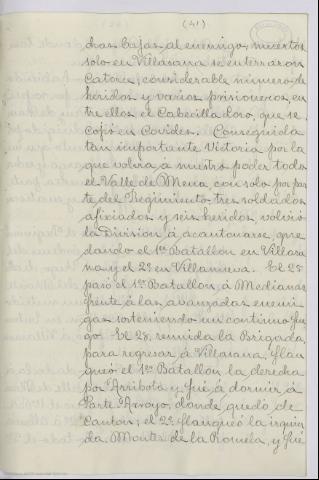 (41)
chas bajas al enemigo, muertos
solo en Villasana se enterraron
Catorce, considerable número de
heridos y varios prisioneros, en
tre ellos el Cabecilla Loro, que se
cojió en Covides. Conseguida
tan importante Victoria por la
que volvía á nuestro poder todo
el Valle de Mena, con solo por par
te del Regimiento tres soldados
afixiados y seis heridos, volvió
la División á acantonarse, que
dando el 1er Batallón en Villasa
na y el 2º en Villanueva. El 25
pasó el 1er Batallón á Medianas
frente á las avanzadas enemi
gas sosteniendo un continuo fue
go. El 28, reunida la Brigada,
para regresar á Villasana, flan
queó el 1er Batallón la derecha
por Arribota y fué á dormir á
Parte Arroyo, donde quedó de
Cantón; el 2º flanqueó la izquier
da, Monte de la y fué